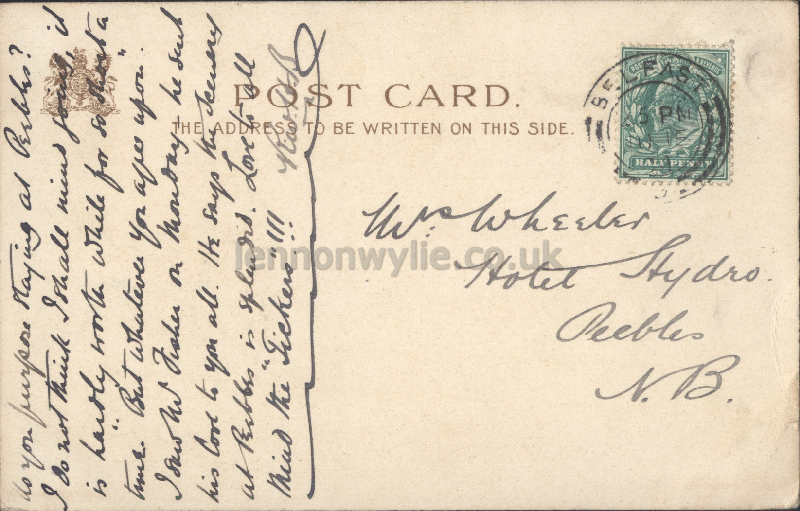 POST CARD.
THE ADDRESS TO BE WRITTEN ON THIS SIDE.
BELFAST
PM
HALFPENNY
Mrs Wheeler
Hotel Hydro.
Peebles
N.B.
lennonwylie.co.uk
do you purpose staying at Peebles?
I do not think I shall mind going, it
is "hardly worth while for so short a
time." But whatever you agree upon.
I saw Mr Fisher on Monday he sent
his love to you all. He says the scenery
at Peebles is splendid. Love to all
Mind the "Tickers" !!!